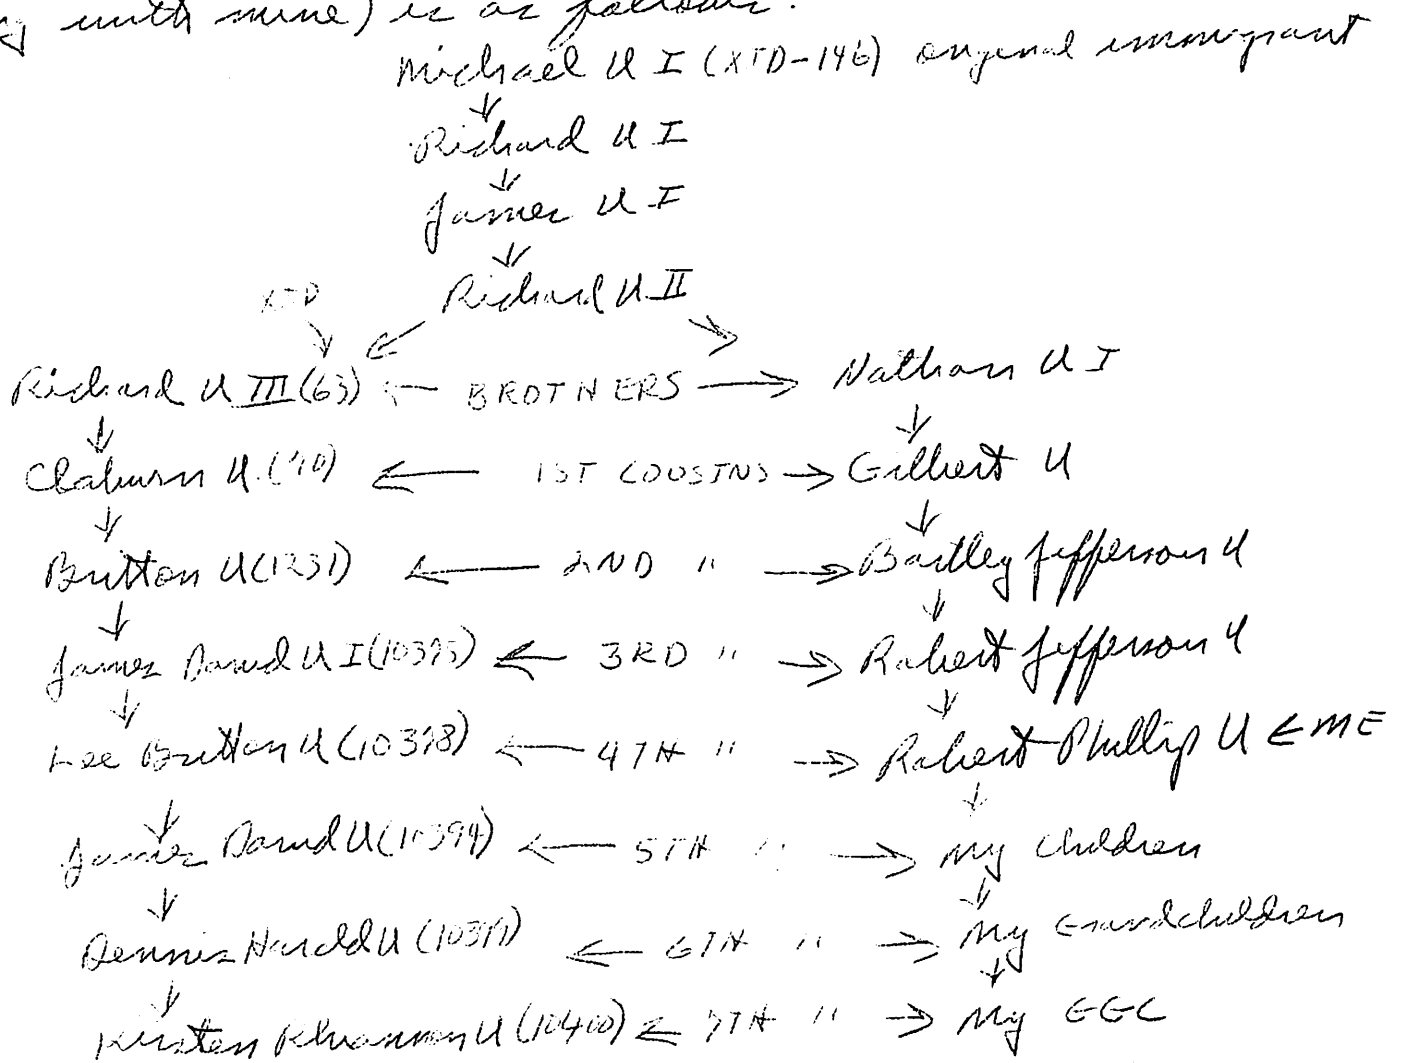 y with mine) is as follows:
Michael U I (XTD-146) original immigrant
Richard U I
James U I
Richard U II
XTD
Richard U III (63) BROTHERS Nathan U I
Claburn U. (90) 1ST COUSINS Gilbert U
Britton U (1231) 2ND " Bartley Jefferson U
James David U I (10395) 3RD " Robert Jefferson U
Lee Britton U (10398) 4TH " Robert Phillip U ← ME
James David U (10394) 5TH " My children
Dennis Harold U 6TH " My Grandchildren
Kirsten Rhiannon U (10400) 7TH " My GGC